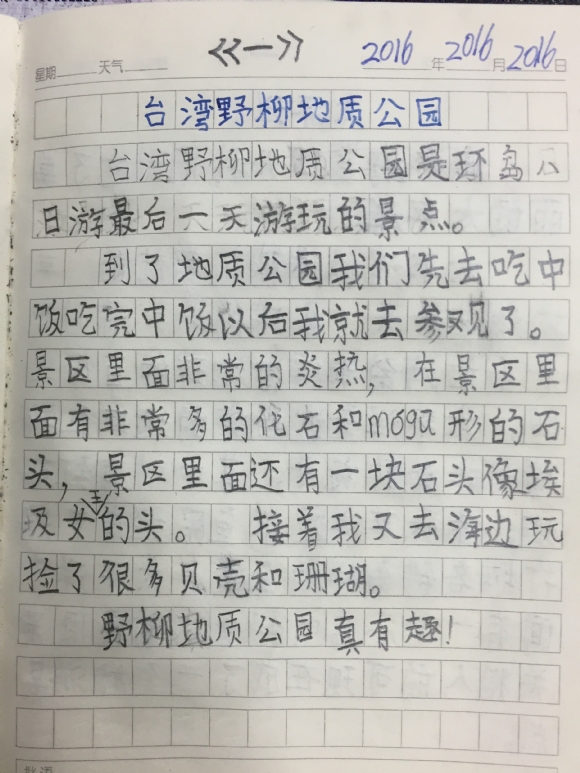 《《一》》
星期 天气 2016年2016月2016日
台湾野柳地质公园
台湾野柳地质公园是环岛八
日游最后一天游玩的景点。
到了地质公园我们先去吃中
饭吃完中饭以后我就去参观了。
景区里面非常的炎热，在景区里
面有非常多的化石和mógū形的石
头，景区里面还有一块石头像埃
及女王的头。接着我又去海边玩
捡了很多贝壳和珊瑚。
野柳地质公园真有趣！